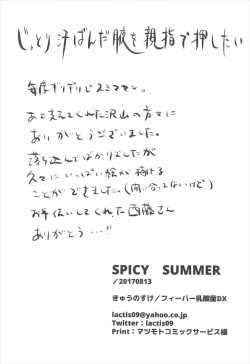 じっとり汗ばんだ腋を親指で押したい
毎度ギリギリじスミマセン。
あと支えてくれた沢山の方々に
ありがとうございました。
落ち込んでばかりでしたが
久々にいっぱい絵が描ける
ことができました。(間に合ってないけど)
お手伝いしてくれた西藤さん
ありがとう…!!
SPICY SUMMER
/20170813
きゅうのすけ/フィーバー乳酸菌DX
lactis09@yahoo.co.jp
Twitter:lactis09
Print:マツモトコミックサービス様